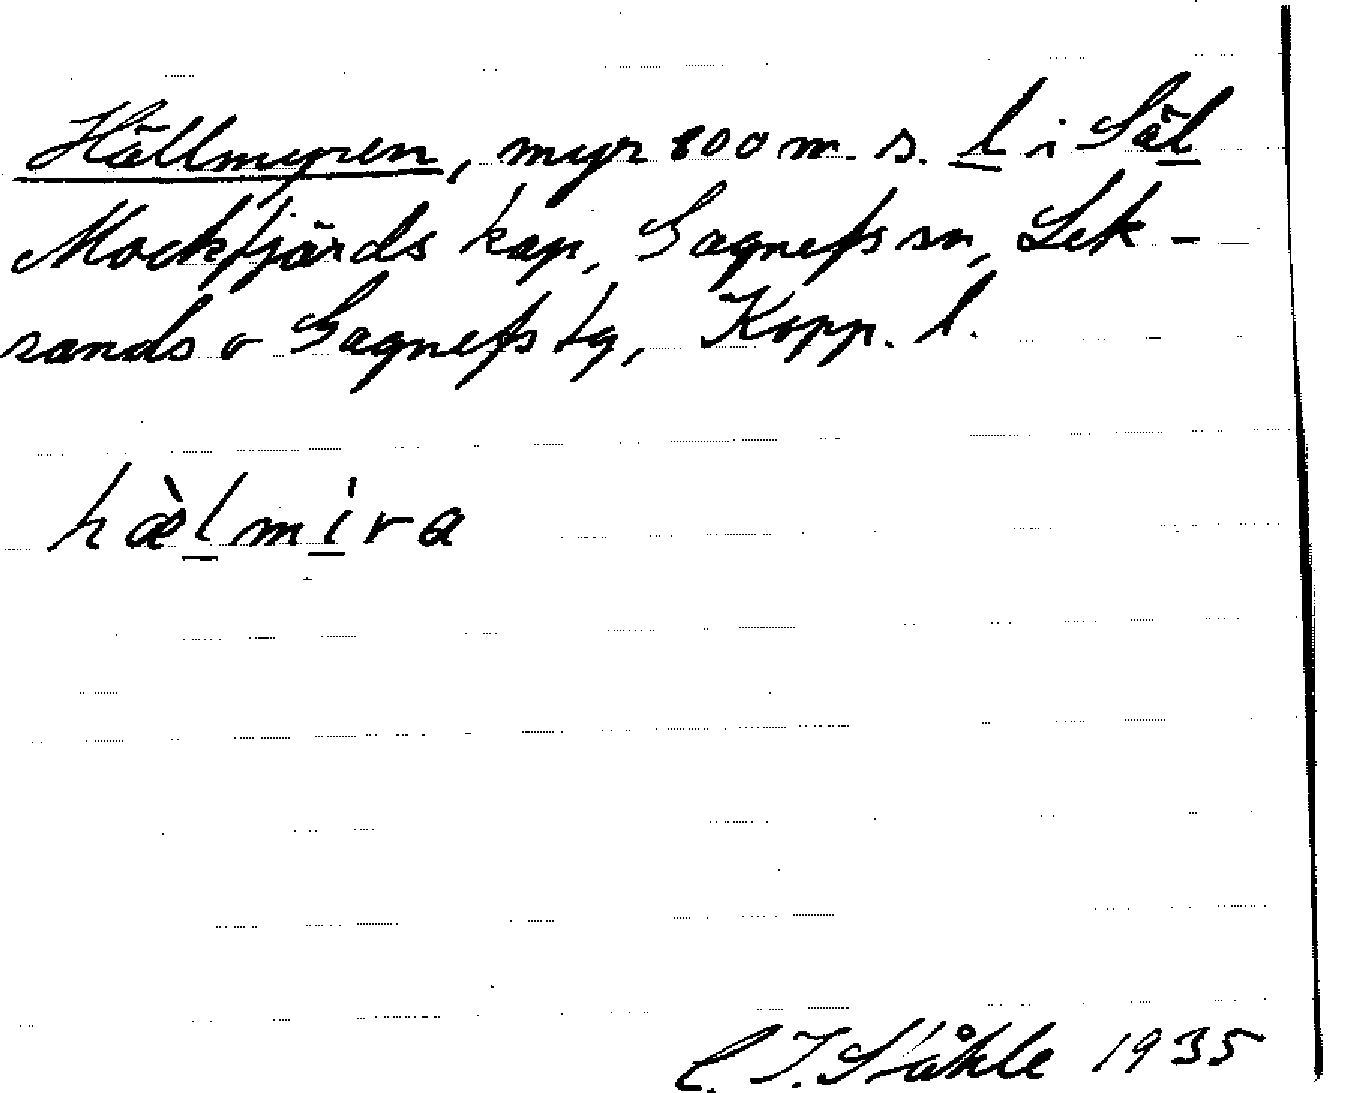 Hällmyren, myr 800 m. s. l i Säl
Mockfjärds kap, Gagnefs sn, Lek-
sands o Gagnefs tg, Kopp. l.
hæ̀lmira
C. I. Ståhle 1935